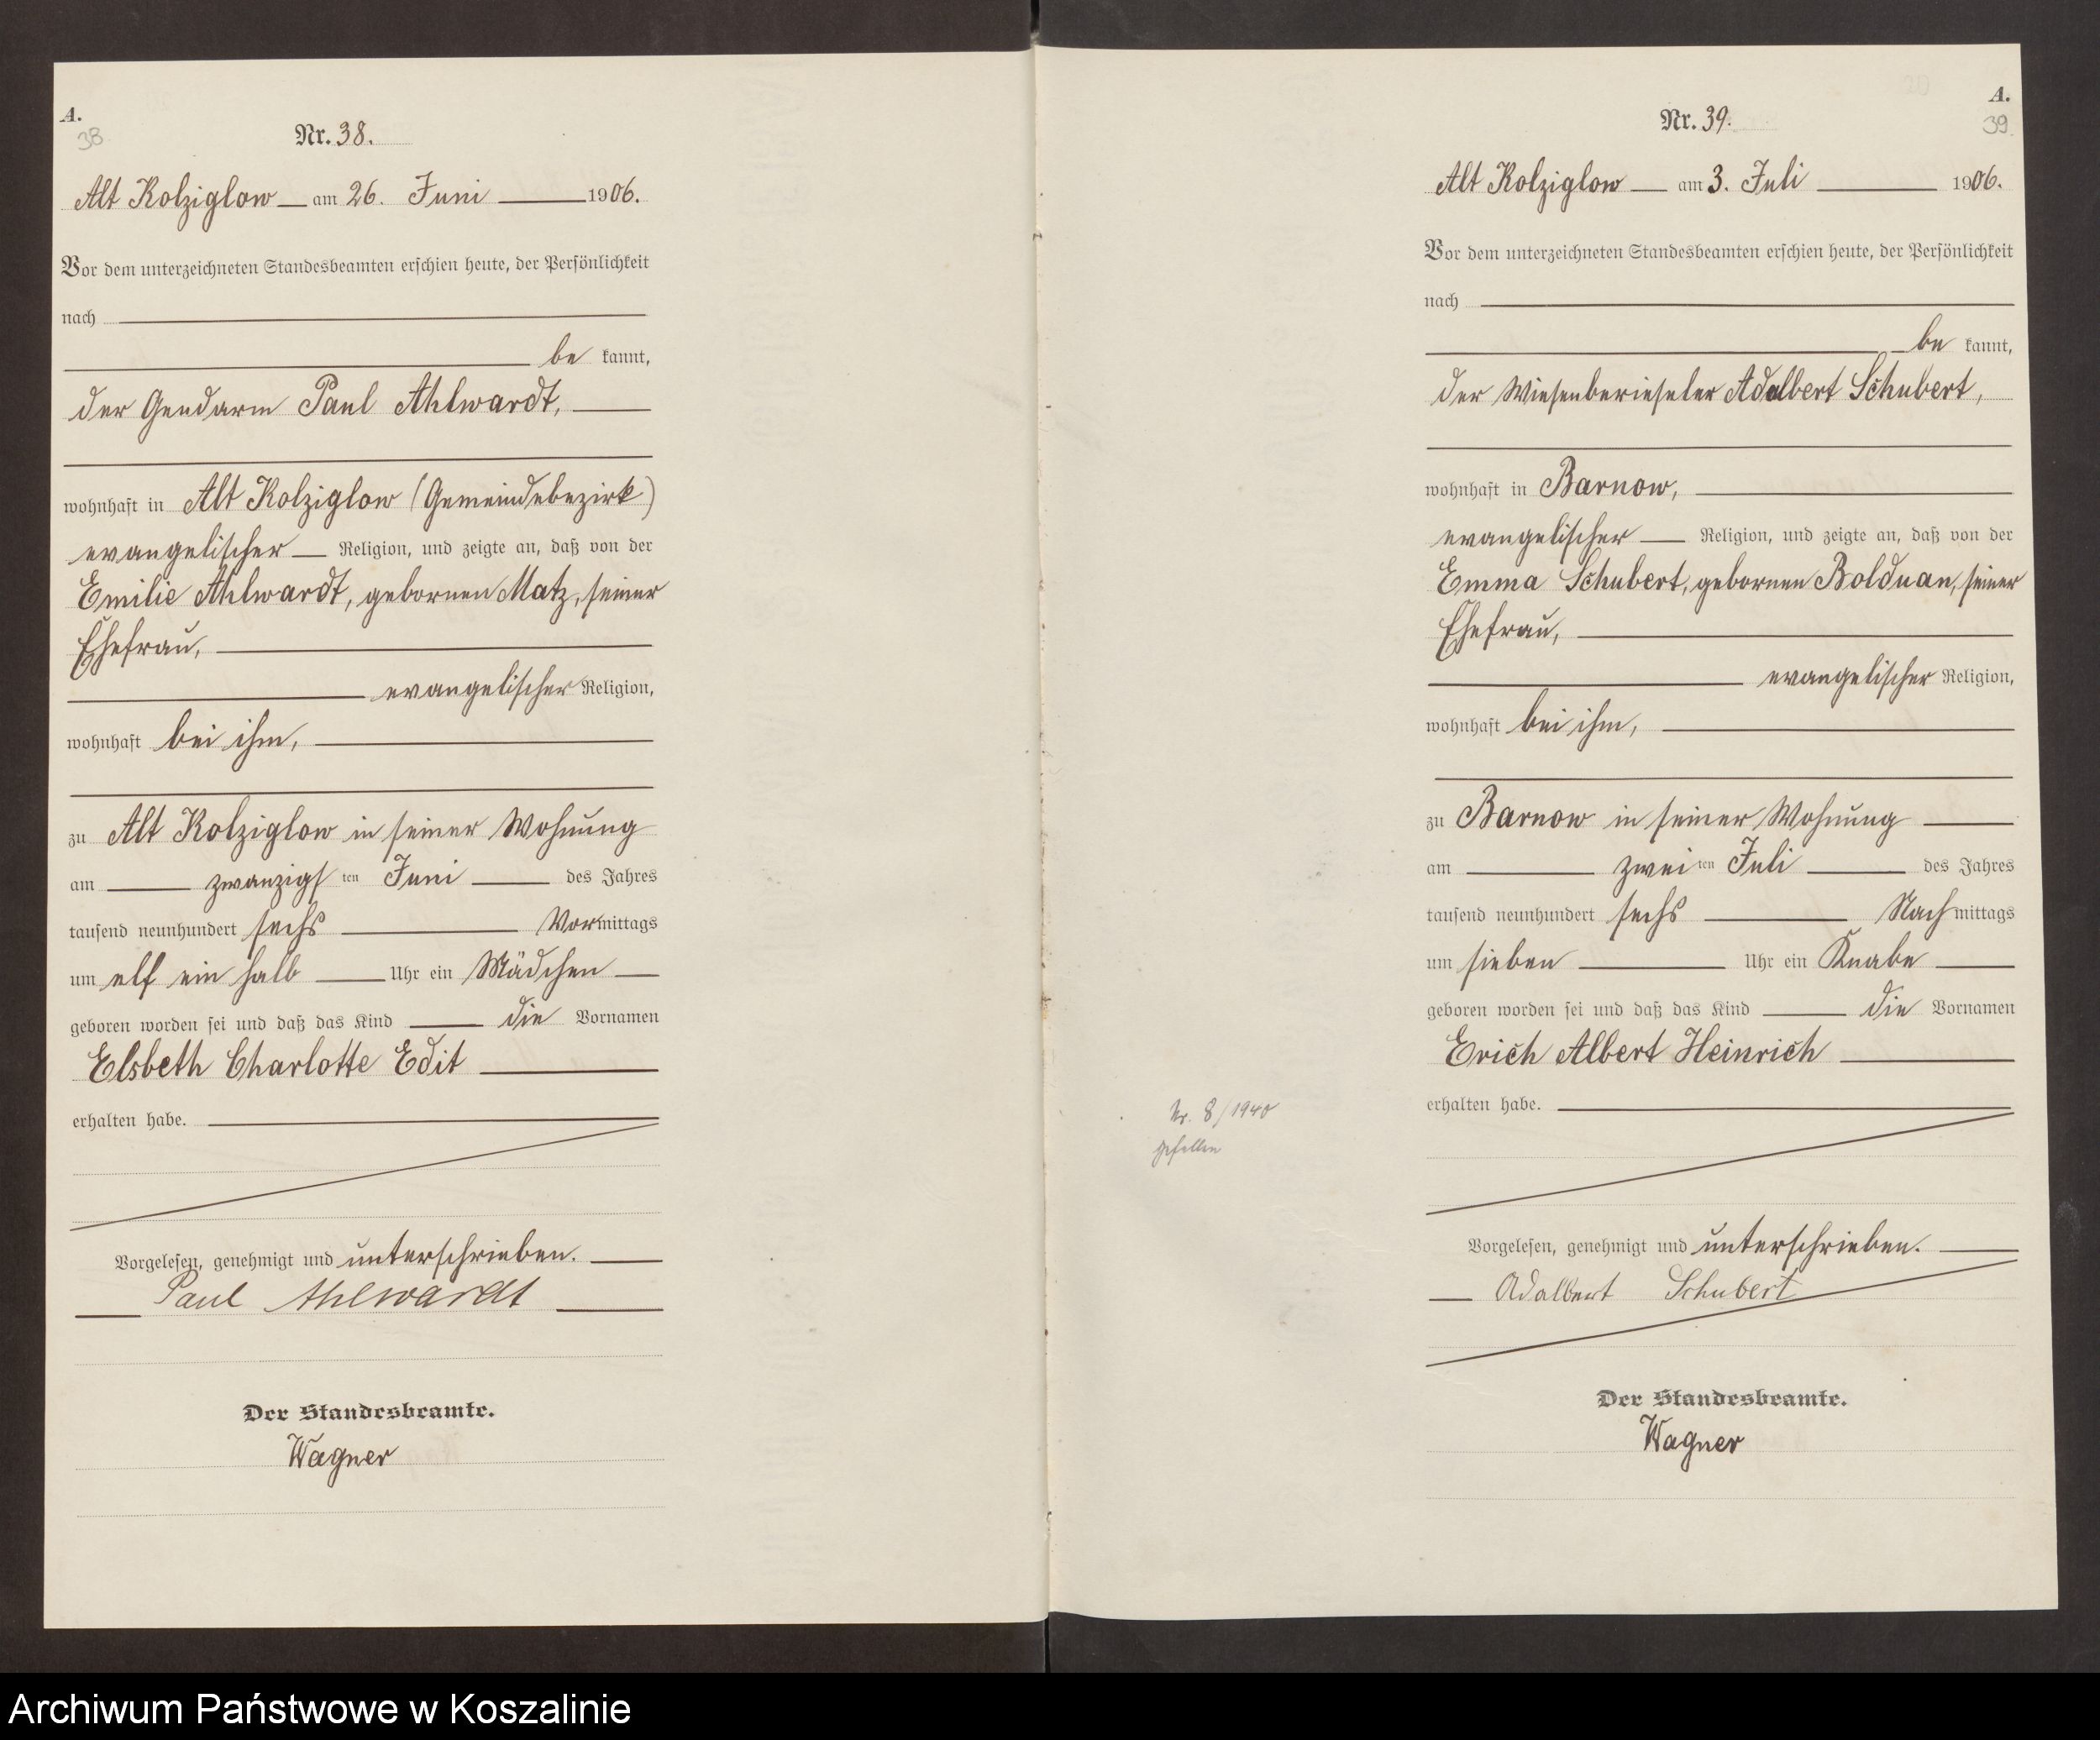 A.
38
Nr. 38.
Alt Kolziglow am 26. Juni 1906.
Vor dem unterzeichneten Standesbeamten erschien heute, der Persönlichkeit
nach
be kannt,
der Gendarm Paul Ahlwardt,
wohnhaft in Alt Kolziglow (Gemeindebezirk)
evangelischer Religion, und zeigte an, daß von der
Emilie Ahlwardt, gebornen Matz, seiner
Ehefrau,
evangelischer Religion,
wohnhaft bei ihm,
zu Alt Kolziglow in seiner Wohnung
am zwanzigsten Juni des Jahres
tausend neunhundert sechs Vormittags
um elf ein halb Uhr ein Mädchen
geboren worden sei und daß das Kind die Vornamen
Elsbeth Charlotte Edit
erhalten habe.
Vorgelesen, genehmigt und unterschrieben.
Paul Ahlwardt
Der Standesbeamte.
Wagner
A.
39
Nr. 39.
Alt Kolziglow am 3. Juli 1906.
Vor dem unterzeichneten Standesbeamten erschien heute, der Persönlichkeit
nach
be kannt,
der Wiesenberieseler Adalbert Schubert,
wohnhaft in Barnow,
evangelischer Religion, und zeigte an, daß von der
Emma Schubert, gebornen Bolduan, seiner
Ehefrau,
evangelischer Religion,
wohnhaft bei ihm,
zu Barnow in seiner Wohnung
am zweiten Juli des Jahres
tausend neunhundert sechs Nachmittags
um sieben Uhr ein Knabe
geboren worden sei und daß das Kind die Vornamen
Erich Albert Heinrich
erhalten habe.
Nr. 8/1940
gefallen
Vorgelesen, genehmigt und unterschrieben.
Adalbert Schubert
Der Standesbeamte.
Wagner
Archiwum Państwowe w Koszalinie